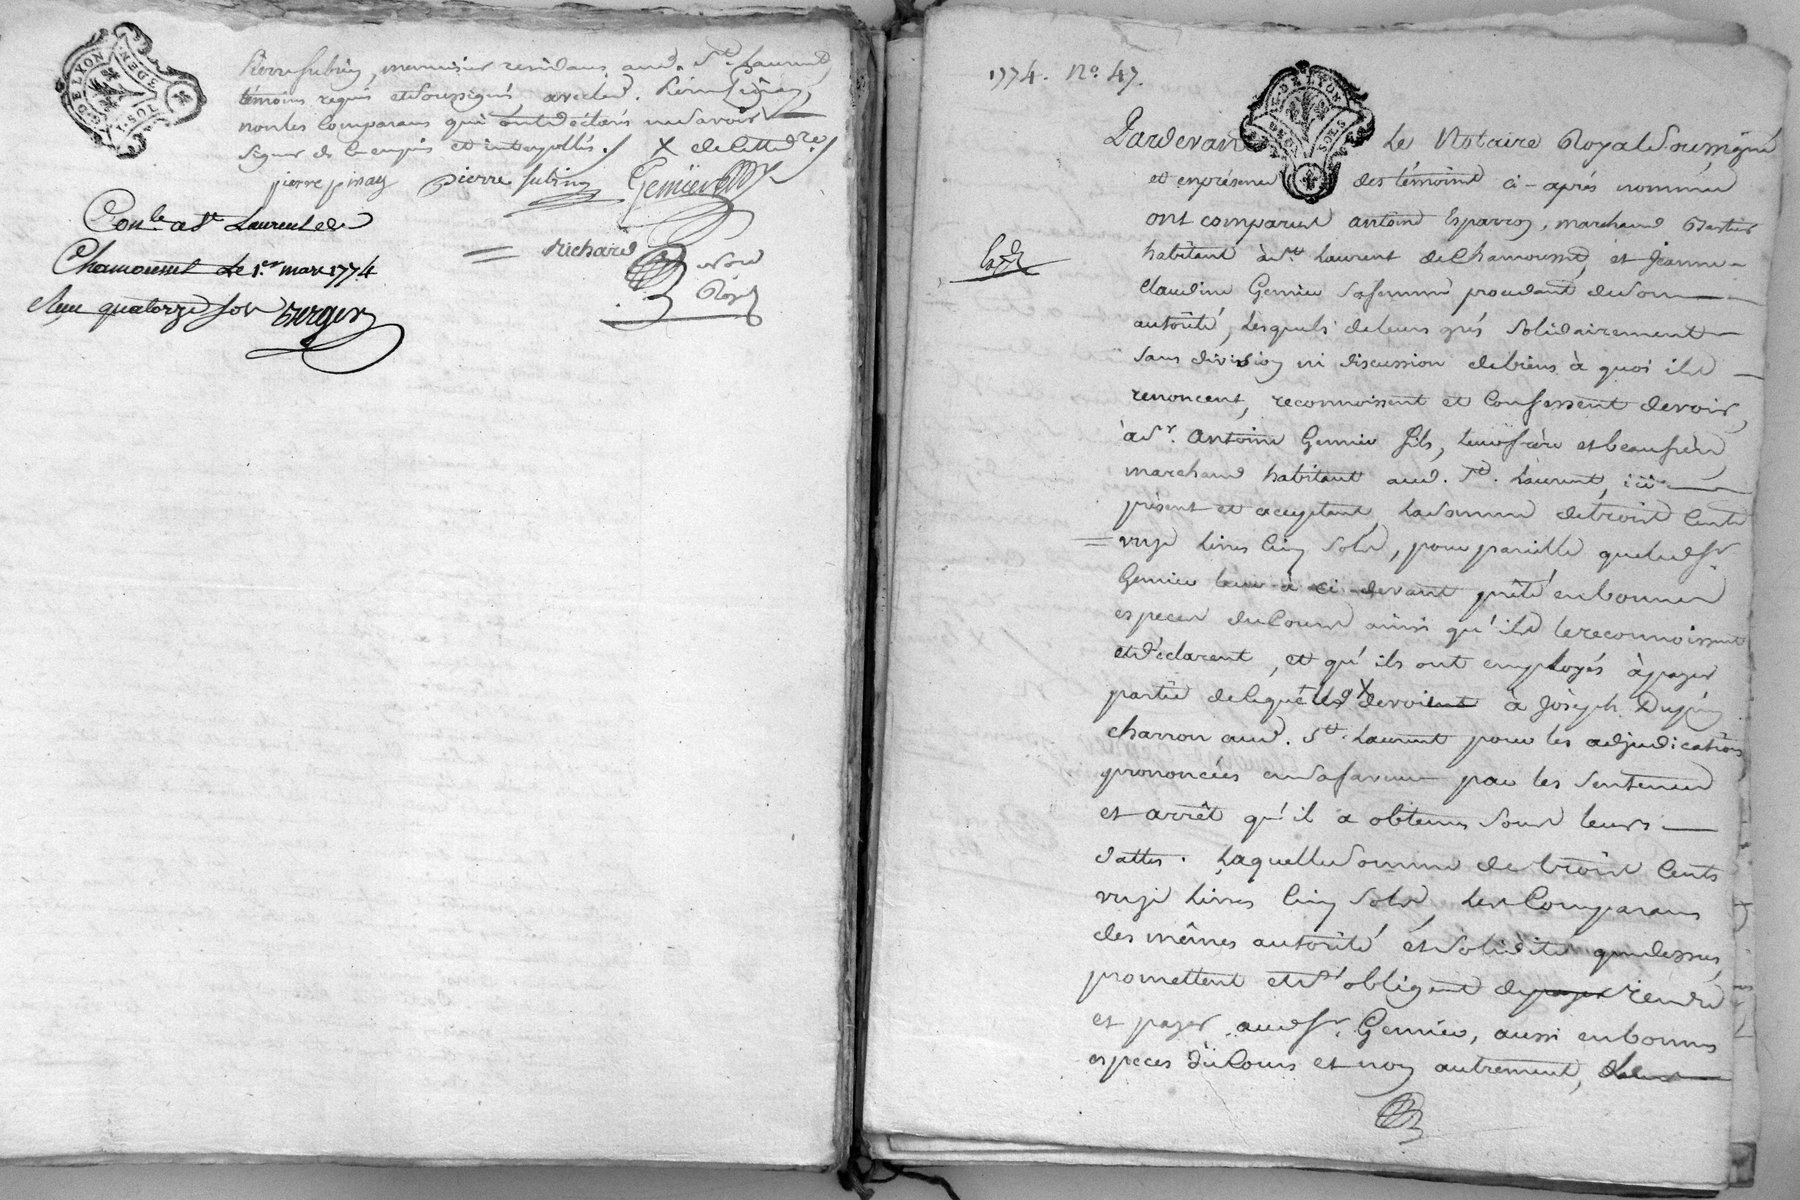 G. DE LYON
DEN. SOLS
Pierre Subrin, menuisier residans aud. St. Laurent,
témoins requis et soussignés, avec led.
non les Comparans qui ont déclarés ne savoir
signer de ce enquis et interpellés ./. X
pierre pinay pierre subrin Gemier
Con.le a St Laurent de
Chamousset le 1.er mars 1774
Reçu quatorze sols Berger
Richard
Not.
Royal
1774. No. 47.
G. DE LYON
DEN. SOLS
Pardevant Le Notaire Royal Soussigné
et en présence des témoins ci-après nommés
ont comparus antoine Esparron, marchand
habitant à St. Laurent de Chamousset, et Jeanne
Claudine Gemier sa femme procedant de son
autorité, Lesquels de leurs grés solidairement
sans division ni discussion de biens à quoi ils
renoncent, reconnoissent et Confessent devoir,
à Sr. Antoine Gemier fils, leur frère et beaufrère
marchand habitant aud. St. Laurent, ici
présent et acceptant, La somme de trois Cents
vingt Livres Cinq sols, pour pareille que led. Sr.
Gemier leur à ci-devant prêté en bonnes
especes du Cours ainsi qu'ils le reconnoissent
et déclarent, et qu'ils ont employés à payer
partie de ce qu'ils X devoient à Joseph Dupuy
charron aud. St. Laurent pour les adjudications
prononcées en sa faveur par les sentences
et arrêt qu'il a obtenus sous leurs
dattes. Laquelle somme de trois Cents
vingt Livres Cinq sols, Les Comparans
des mêmes autorité et solidité que dessus,
promettent et s'obligent de payer rendre
et payer aud. Sr. Gemier, aussi en bonnes
especes du Cours et non autrement,